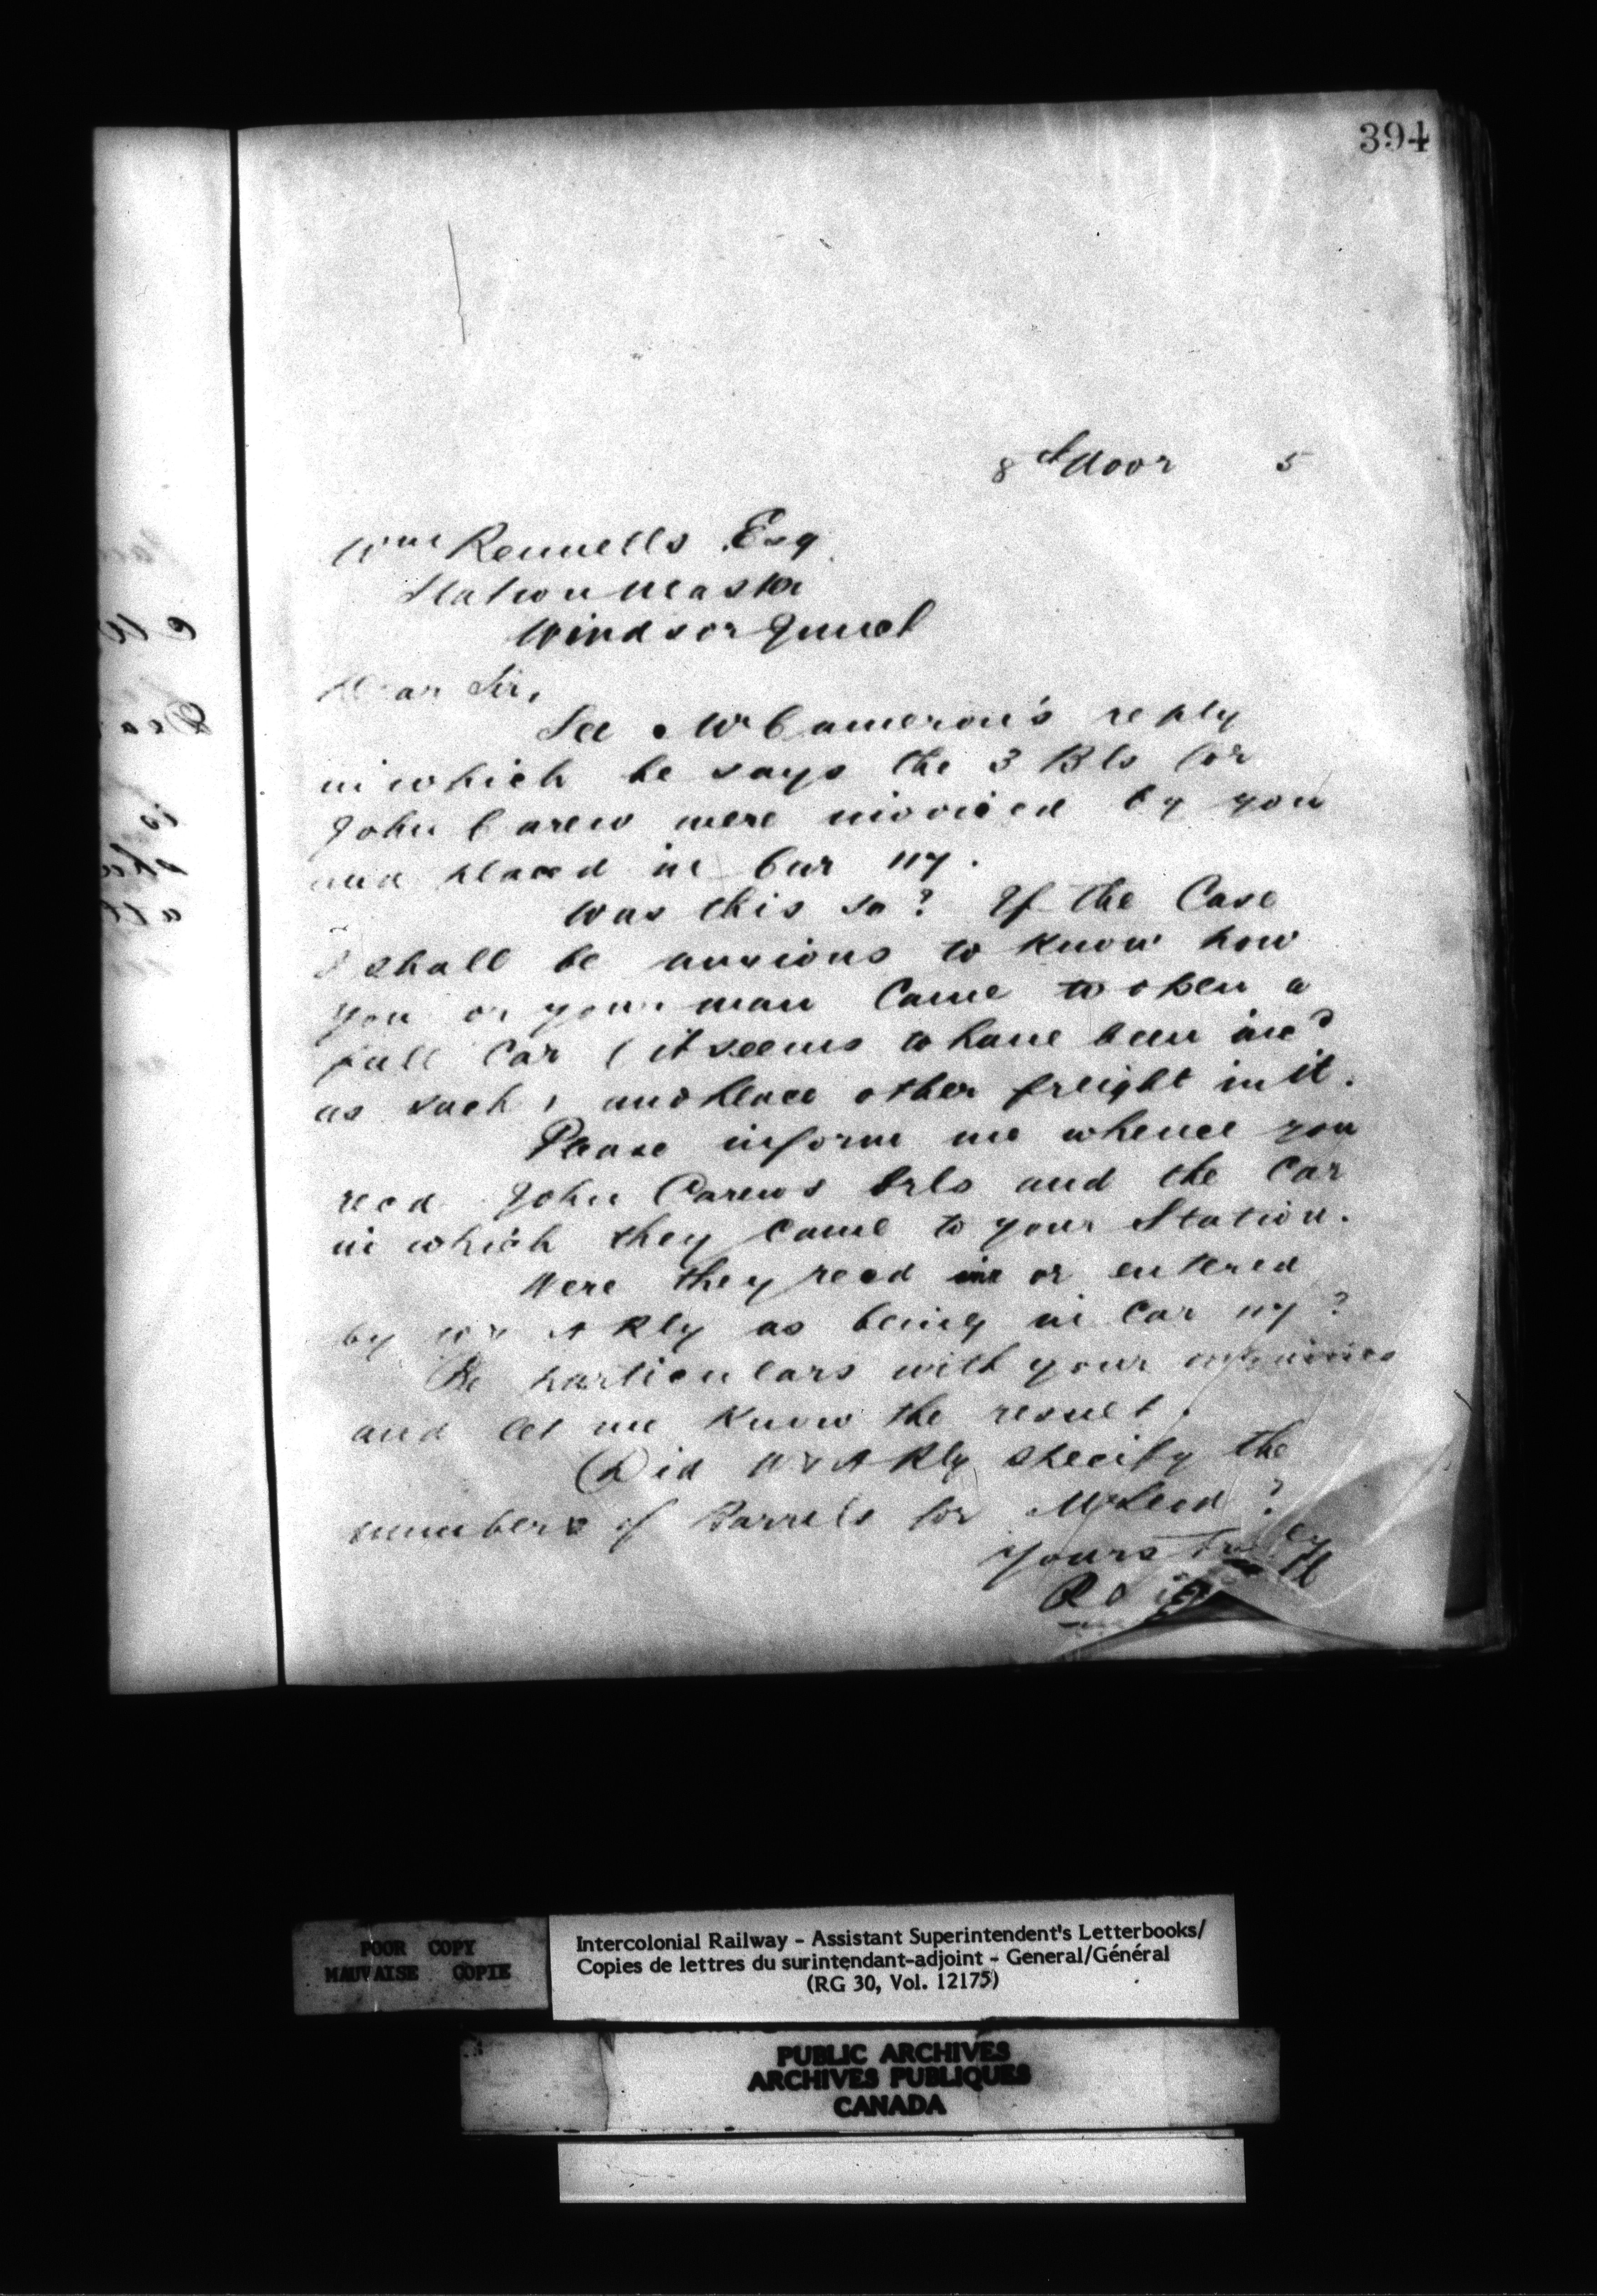 394
8th Novr 5
Wm Rennells Esq
Station Master
Windsor Junct
Dear Sir,
See Mr Cameron's reply
in which he says the 3 Bls for
John Carew were invoiced by you
and placed in Car 117.
Was this so? If the Case
I shall be anxious to know how
you or your man Came to open a
full Car (it seems to have been incd
as such) and place other freight in it.
Please inform me whence you
recd John Carews brls and the Car
in which they came to your Station.
Were they recd in or entered
by W & A Rly as being in Car 117?
Be particulars with your
and let me know the result.
Did W & A Rly specify the
numbers of Barrels for McLeod?
Yours truly
POOR COPY
MAUVAISE COPIE
Intercolonial Railway - Assistant Superintendent's Letterbooks/
Copies de lettres du surintendant-adjoint - General/Général
(RG 30, Vol. 12175)
PUBLIC ARCHIVES
ARCHIVES PUBLIQUES
CANADA